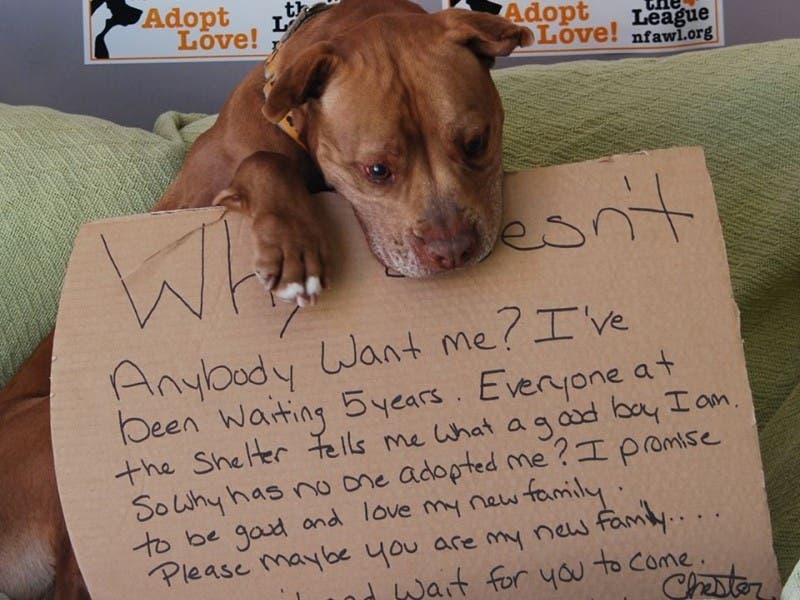 Adopt
Love!
the
Adopt
Love!
the
League
nfawl.org
Why esn't
Anybody Want me? I've
been waiting 5 years. Everyone at
the Shelter tells me what a good boy I am.
So why has no one adopted me? I promise
to be good and love my new family.
Please maybe you are my new family....
and Wait for you to come.
Chester